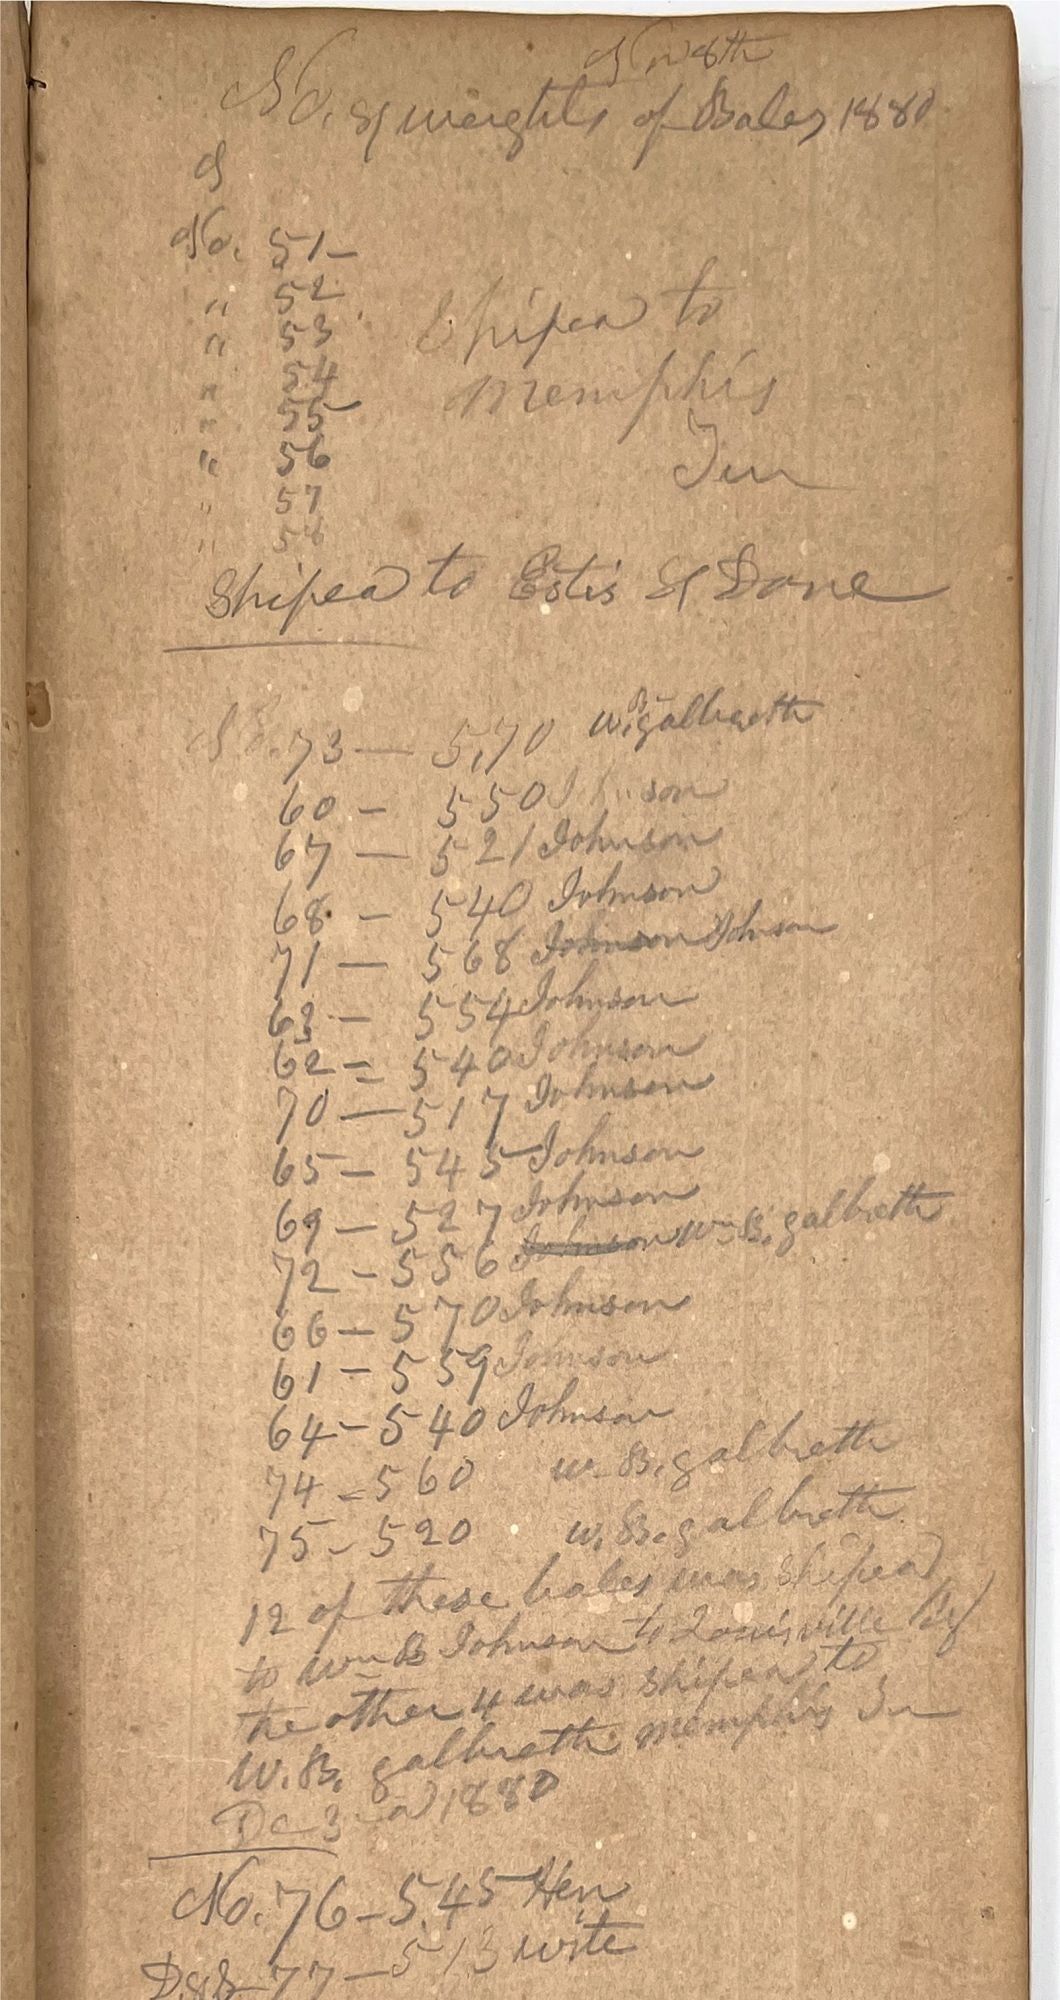 Nov 8th
No. & weights of Bales 1880
No. 51-
" 52
" 53
" 54
" 55
" 56
" 57
" 58
Shiped to
Memphis
Tenn
Shiped to Estis & Done
No. 73 — 5,70 W.B. galbreth
60 - 550 Johnson
67 — 521 Johnson
68 - 540 Johnson
71 — 568 Johnson Johnson
63 - 554 Johnson
62 = 540 Johnson
70 — 517 Johnson
65 - 545 Johnson
69 - 527 Johnson
72 - 556 Johnson W.B. galbreth
66 - 570 Johnson
61 - 559 Johnson
64 - 540 Johnson
74 = 560 W.B. galbreth
75 - 520 W.B. galbreth
12 of these bales was shiped
to Wm B Johnson to Louisville Ky
the other 4 was shiped to
W.B. galbreth memphis Tn
Dc 3rd 1880
No. 76 - 5,45 Hen
77 - 513 wite